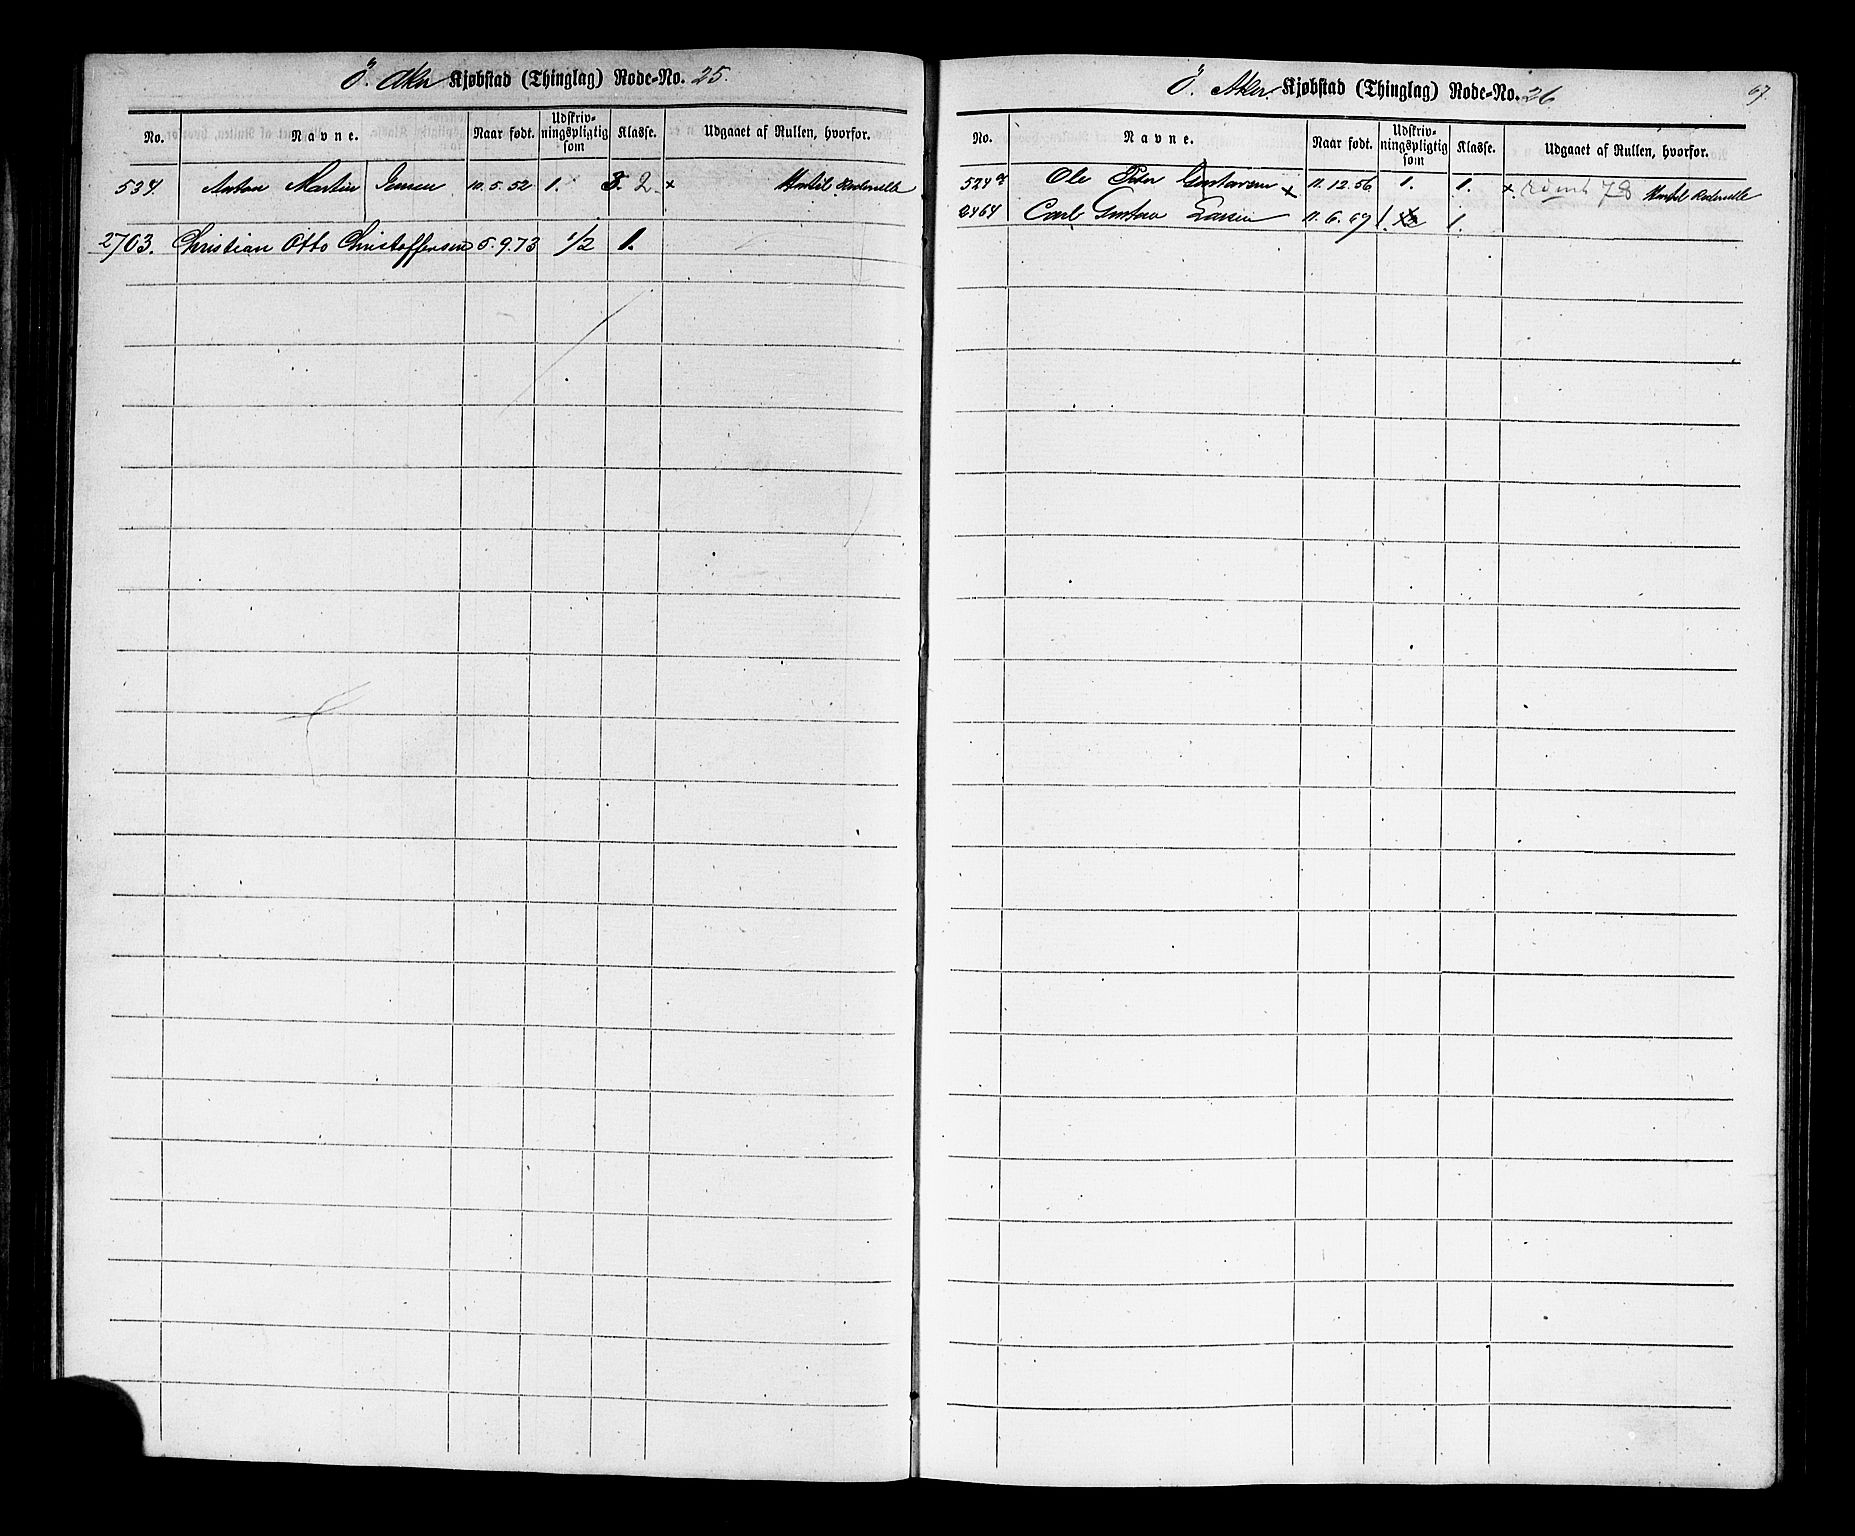 Ö. Aker Kjøbstad (Thinglag) Rode-No. 25.
No. Navne. Naar født. Udskrivningspligtig som Klasse. Udgaaet af Rullen, hvorfor.
534. Anton Martin Jensen 10.5.52 1. 2. ×
2703. Christian Otto Christoffersen 5.9.73 1/2 1.
67.
Ö. Aker. Kjøbstad (Thinglag) Rode-No. 26
No. Navne. Naar født. Udskrivningspligtig som Klasse. Udgaaet af Rullen, hvorfor.
524 a Ole Peter Gustavsen × 11.12.56 1. 1. × 78
2464 Carl Gustav Larsen 11.6.67 1. 1.